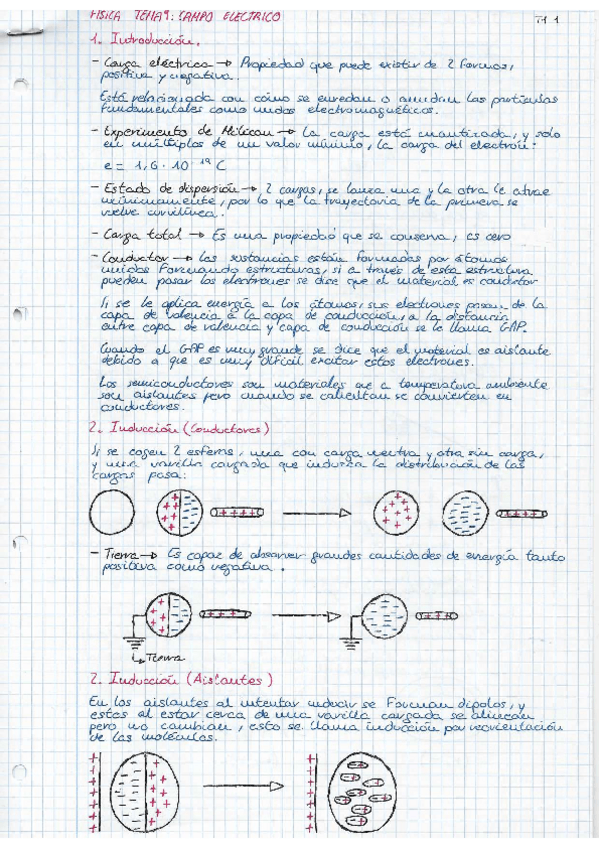 FISICA TEMA 9: CAMPO ELECTRICO
1. Introducción.
- Carga eléctrica → Propiedad que puede existir de 2 formas,
positiva y negativa.
Está relacionada con cómo se enredan o anidan las partículas
fundamentales como nudos electromagnéticos.
- Experimento de Milican → La carga está cuantizada, y solo
en múltiplos de un valor mínimo, la carga del electrón:
e = 1,6 · 10⁻¹⁹ C
- Estado de dispersión → 2 cargas, se lanza una y la otra le atrae
mínimamente, por lo que la trayectoria de la primera se
vuelve curvilínea.
- Carga total → Es una propiedad que se conserva, es cero
- Conductor → Las sustancias están formadas por átomos
unidos formando estructuras, si a través de esta estructura
pueden pasar los electrones se dice que el material es conductor
Si se le aplica energía a los átomos, sus electrones pasan de la
capa de valencia a la capa de conducción, a la distancia
entre capa de valencia y capa de conducción se le llama GAP.
Cuando el GAP es muy grande se dice que el material es aislante
debido a que es muy difícil excitar estos electrones.
Los semiconductores son materiales que a temperatura ambiente
son aislantes pero cuando se calientan se convierten en
conductores.
2. Inducción (Conductores)
Si se cogen 2 esferas, una con carga neutra y otra sin carga,
y una varilla cargada que induzca la distribución de las
cargas pasa:
- Tierra → Es capaz de absorver grandes cantidades de energía tanto
positiva como negativa.
↳ Tierra
2. Inducción (Aislantes)
En los aislantes al intentar inducir se forman dipolos, y
estos al estar cerca de una varilla cargada se alinean
pero no cambian, esto se llama inducción por reorientación
de las moléculas.